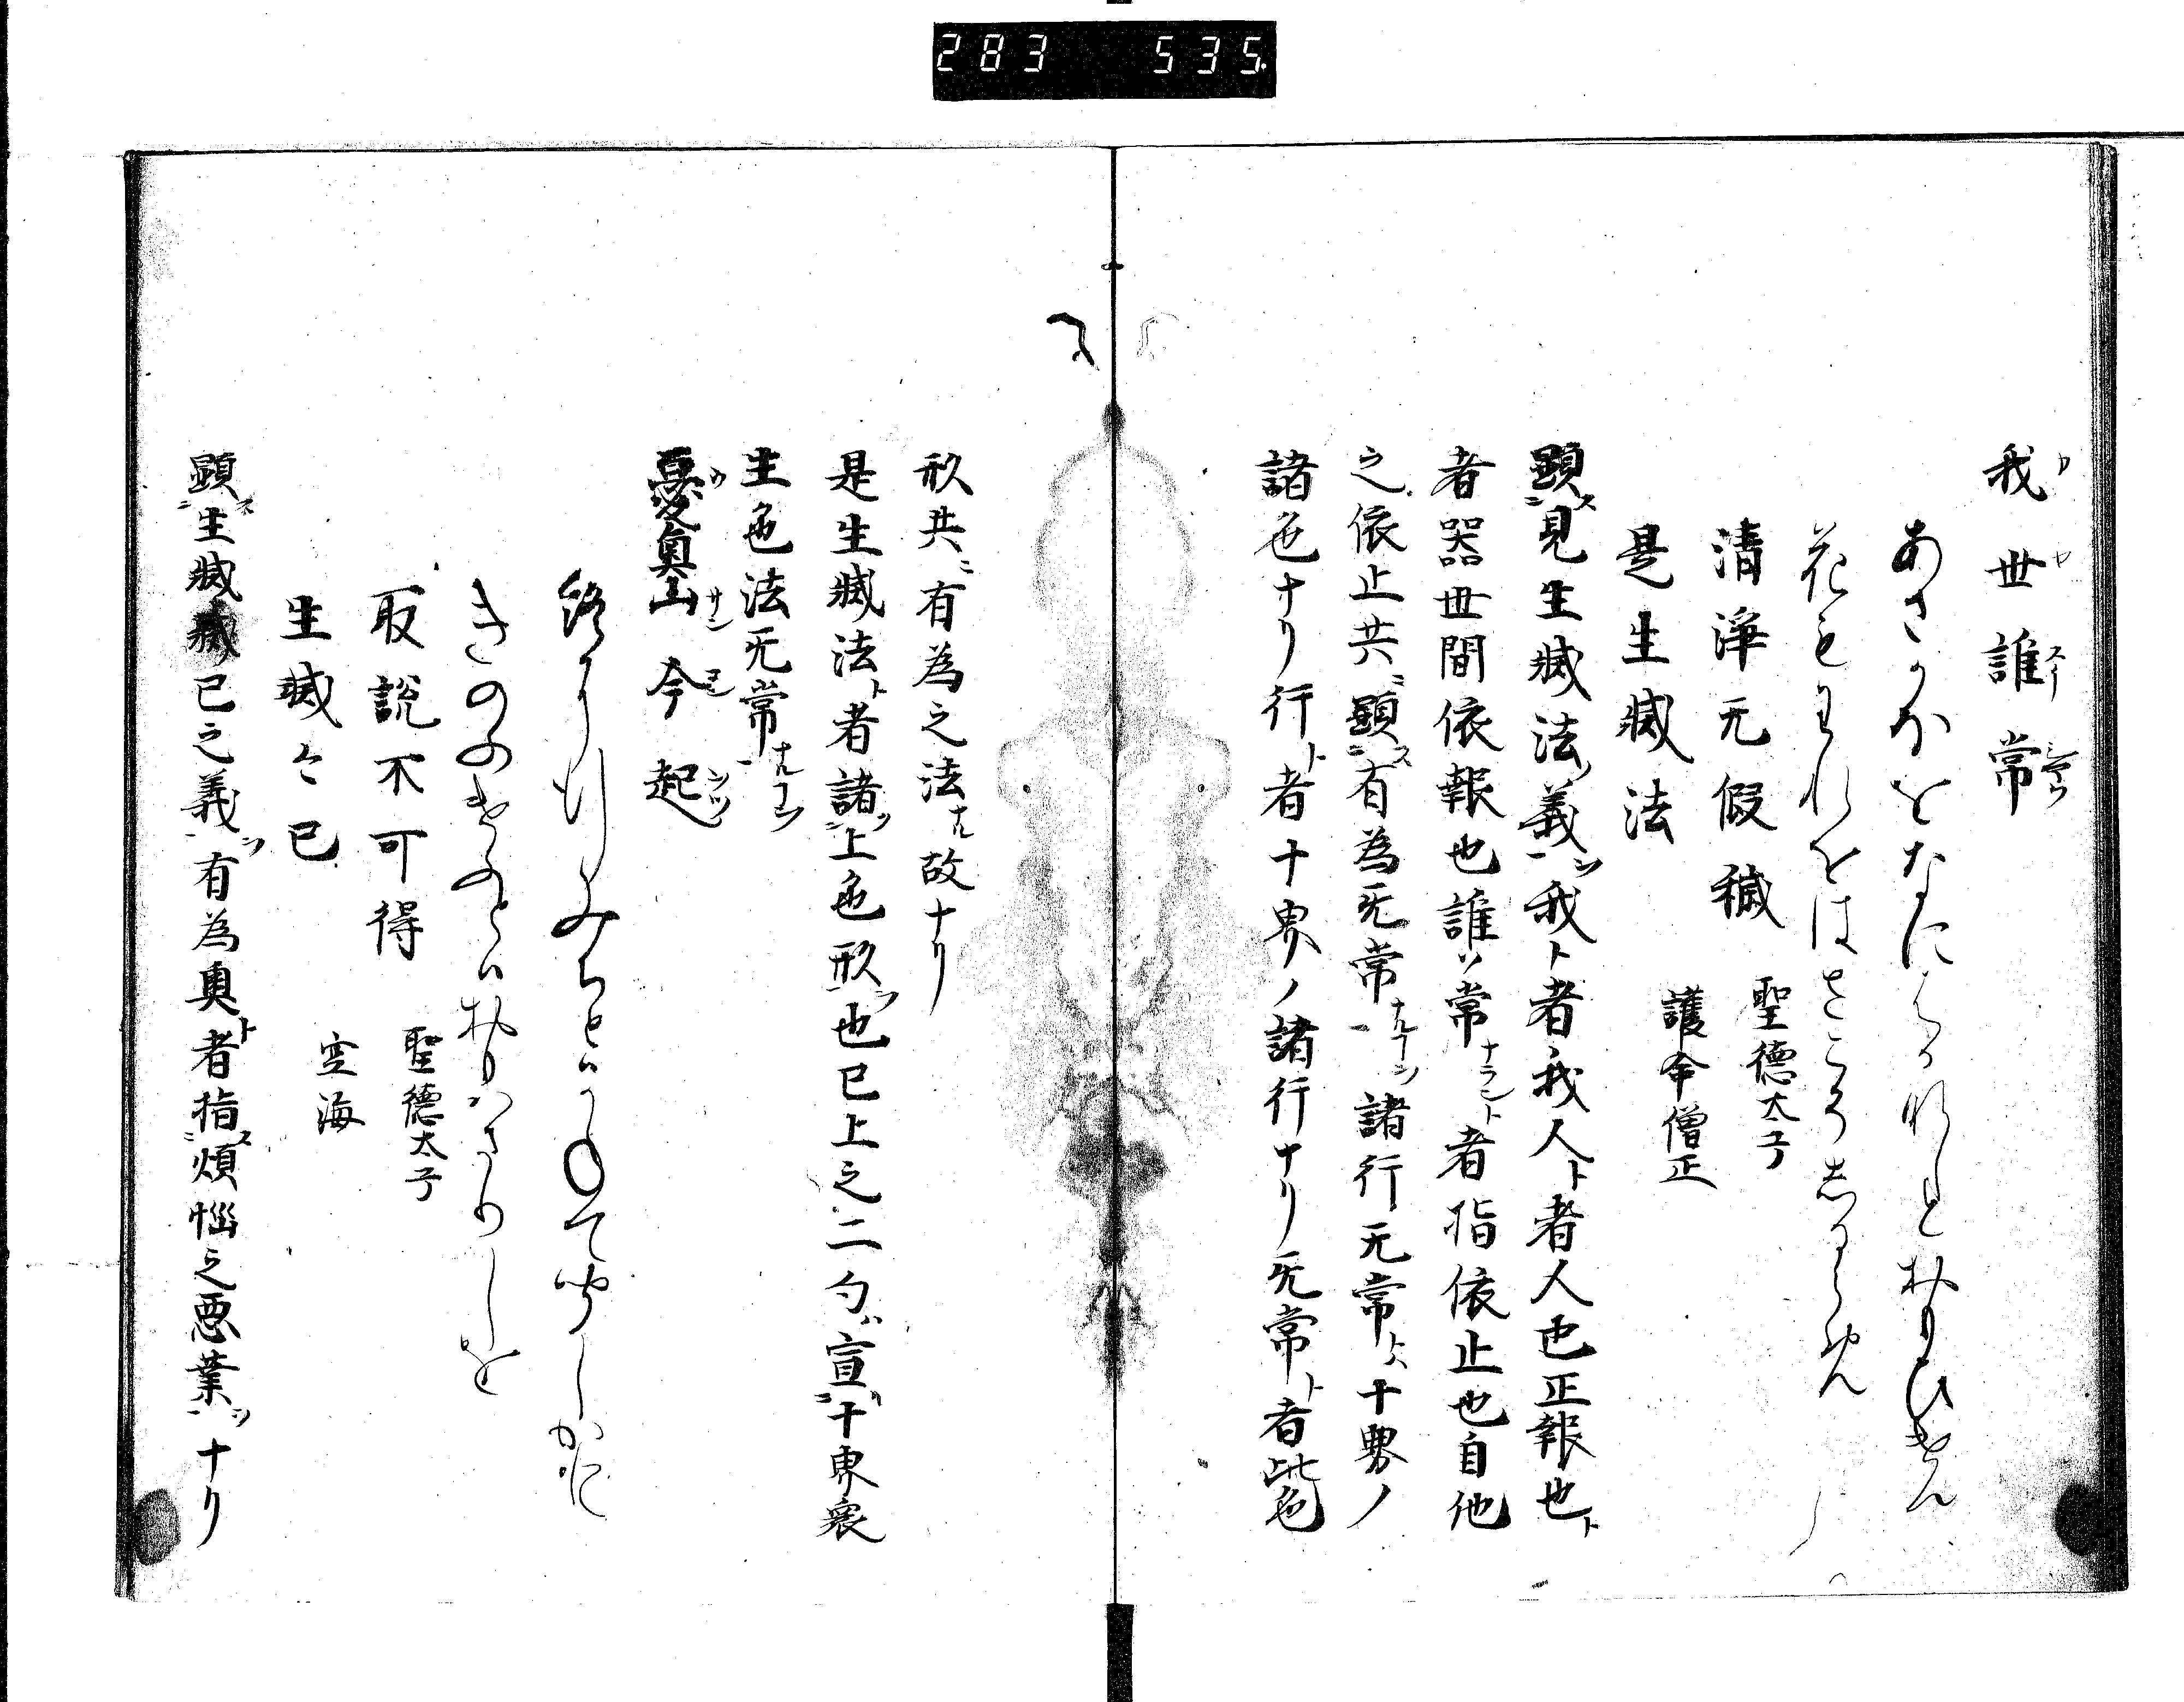 283 535.
我世誰常
あさかほをなにはかなしとおもひけん
花もわれをはさこそ
清淨无假穢 聖德太子
是生滅法 護命僧正
顯見生滅法義我ト者我人ト者人也正報也ト
者器世間依報也誰ソ常ナラント者指依止也自他
之依止共ニ顯有為无常ナルコトヲ諸行无常トハ十界ノ
諸色ナリ行ト者十界ノ諸行ナリ无常ト者此色
形共ニ有為之法ナル故ナリ
是生滅法ト者諸上色形也已上之二句ハ宣十界衆
生色法无常ナルコトヲ
憂奧山今起
終に行みちとはかねて聞しかと
きのふけふとはおもはさりしを
取說不可得 聖德太子
生滅々已 空海
顯生滅滅已之義ヲ有為奧ト者指煩惱之惡業ヲナリ